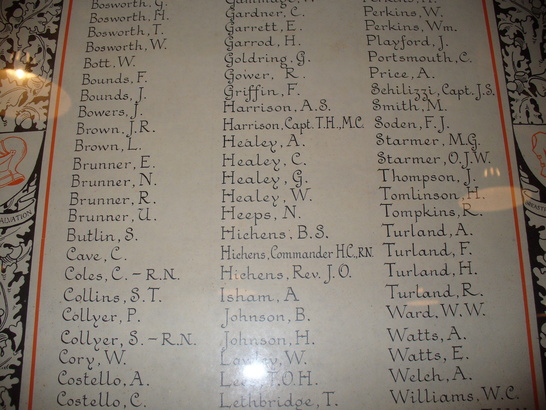 Bosworth, G.
Bosworth, H.
Bosworth, T.
Bosworth, W.
Bott, W.
Bounds, F.
Bounds, J.
Bowers, J.
Brown, J.R.
Brown, L.
Brunner, E.
Brunner, N.
Brunner, R.
Brunner, U.
Butlin, S.
Cave, C.
Coles, C. – R.N.
Collins, S.T.
Collyer, P.
Collyer, S. – R.N.
Cory, W.
Costello, A.
Costello, C.
Gardner, C.
Garrett, E.
Garrod, H.
Goldring, G.
Gower, R.
Griffin, F.
Harrison, A.S.
Harrison, Capt. T.H., M.C.
Healey, A.
Healey, C.
Healey, G.
Healey, W.
Heeps, N.
Hichens, B.S.
Hichens, Commander H.C., R.N.
Hichens, Rev. J.O.
Isham, A
Johnson, B.
Johnson, H.
W.
T.O.H.
Lethbridge, T.
Perkins, W.
Perkins, Wm.
Playford, J.
Portsmouth, C.
Price, A.
Schilizzi, Capt. J.S.
Smith, M.
Soden, F.J.
Starmer, M.G.
Starmer, O.J.W.
Thompson, J.
Tomlinson, H.
Tompkins, R.
Turland, A.
Turland, F.
Turland, H.
Turland, R.
Ward, W.W.
Watts, A.
Watts, E.
Welch, A.
Williams, W.C.
SALVATION